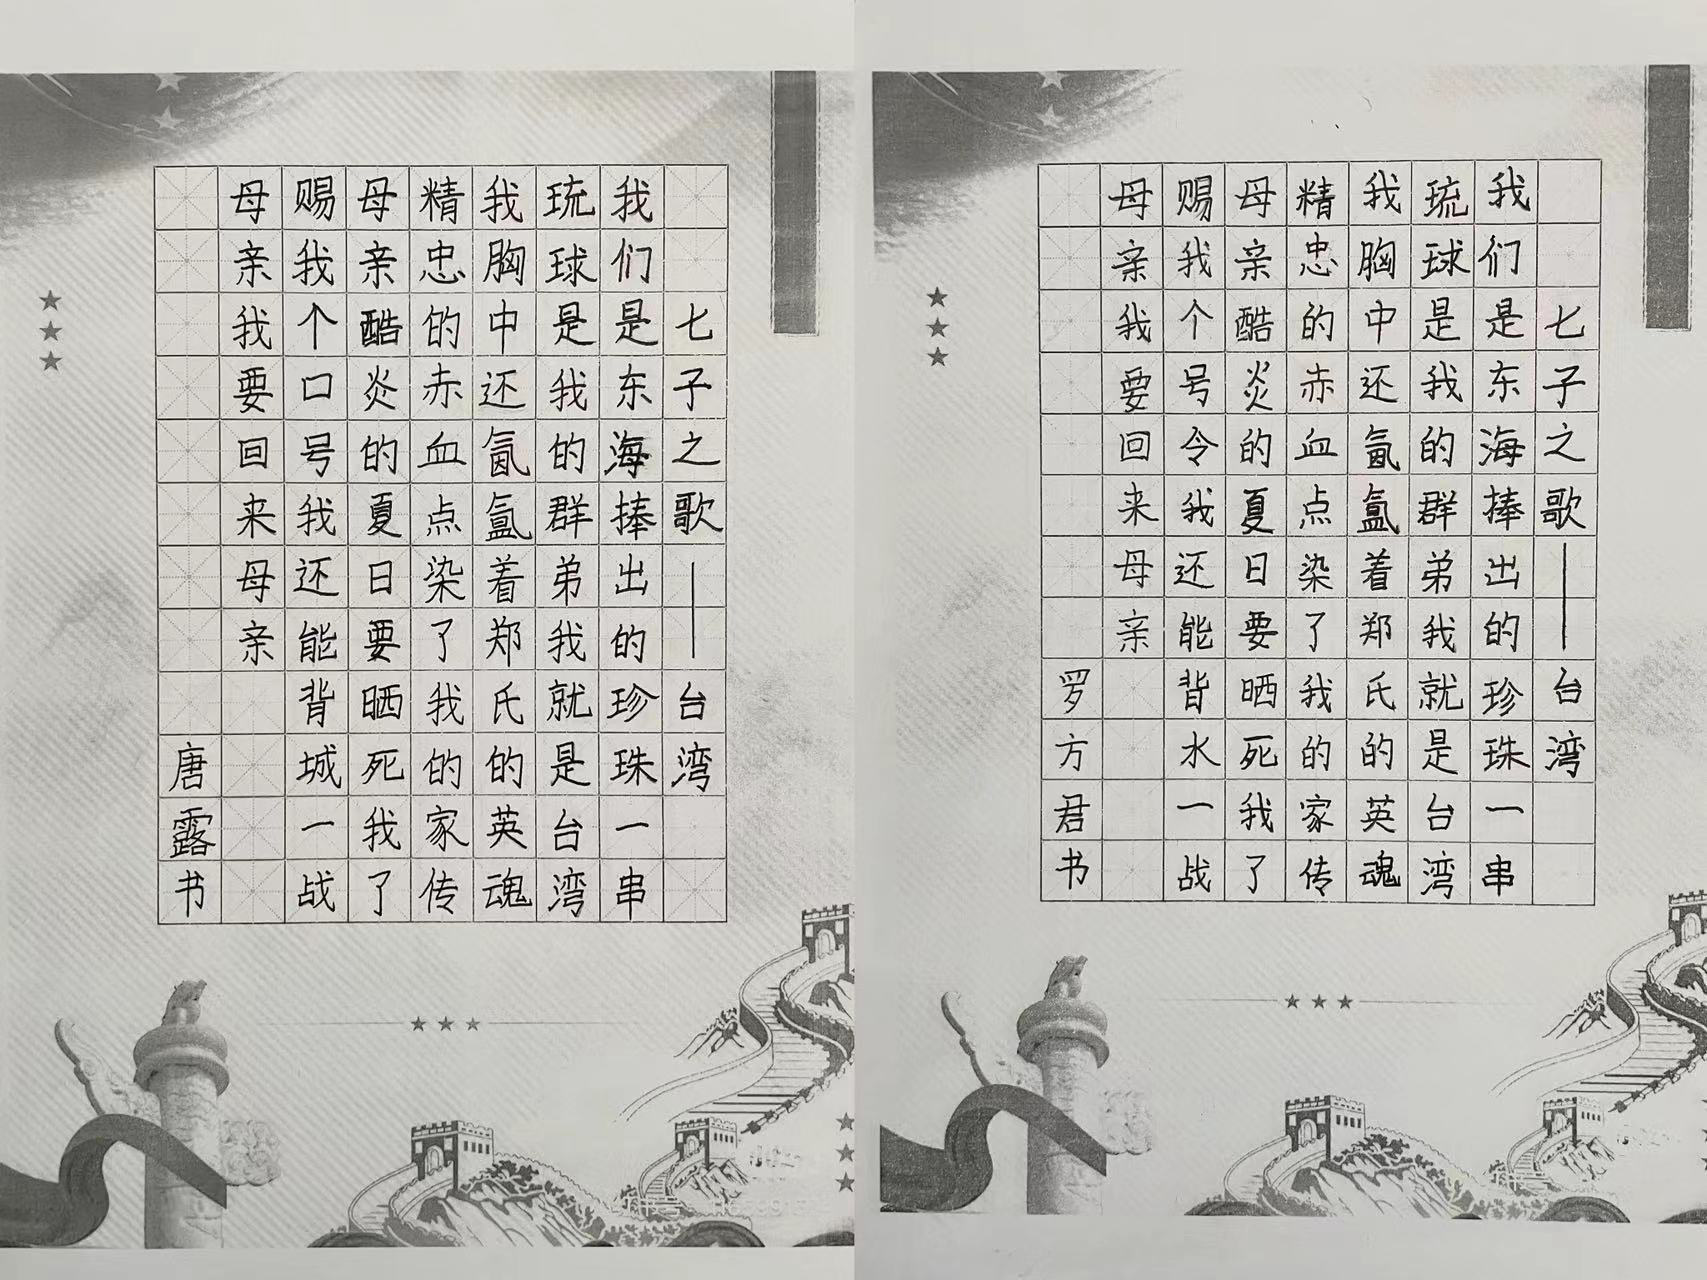 七子之歌——台湾
我们是东海捧出的珍珠一串
琉球是我的群弟我就是台湾
我胸中还氤氲着郑氏的英魂
精忠的赤血点染了我的家传
母亲酷炎的夏日要晒死我了
赐我个口号我还能背城一战
母亲我要回来母亲
唐露书
七子之歌——台湾
我们是东海捧出的珍珠一串
琉球是我的群弟我就是台湾
我胸中还氤氲着郑氏的英魂
精忠的赤血点染了我的家传
母亲酷炎的夏日要晒死我了
赐我个号令我还能背水一战
母亲我要回来母亲
罗方君书